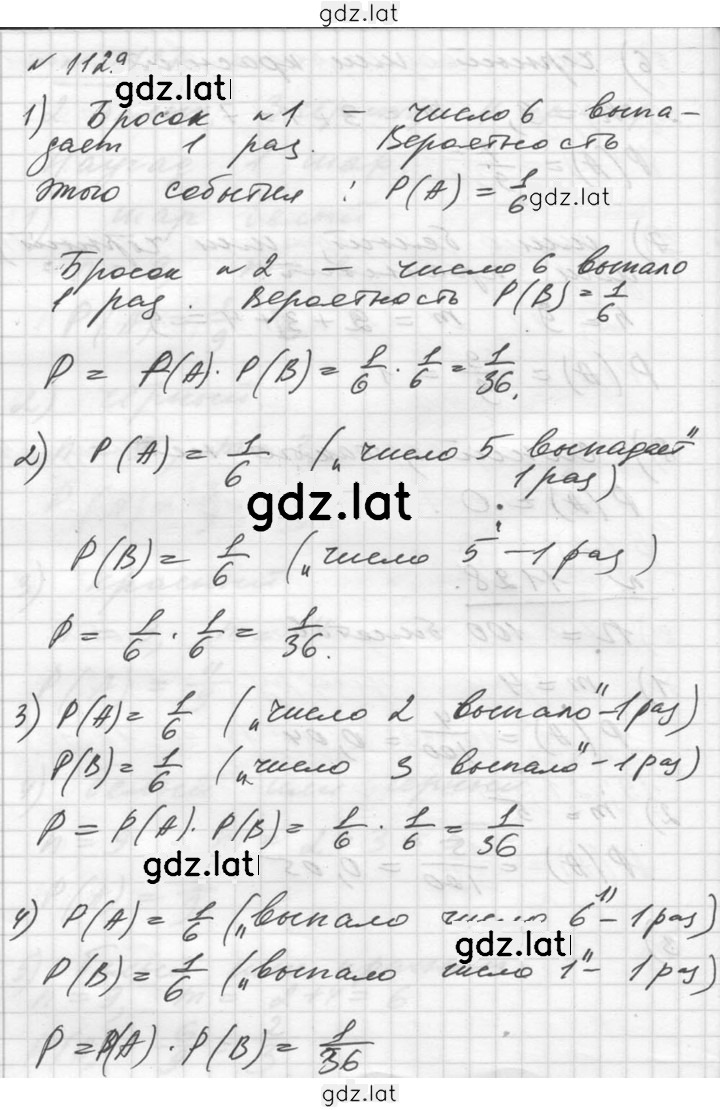 gdz.lat
№ 1129
gdz.lat
1) Бросок №1 – число 6 выпа-
дает 1 раз. Вероятность
этого события: P(A) = 1/6
gdz.lat
Бросок №2 – число 6 выпало
1 раз. Вероятность P(B) = 1/6
P = P(A) · P(B) = 1/6 · 1/6 = 1/36.
2) P(A) = 1/6 („число 5 выпадает"
1 раз)
gdz.lat
P(B) = 1/6 („число 5" – 1 раз)
P = 1/6 · 1/6 = 1/36.
3) P(A) = 1/6 („число 2 выпало" – 1 раз)
P(B) = 1/6 („число 3 выпало" – 1 раз)
P = P(A) · P(B) = 1/6 · 1/6 = 1/36
gdz.lat
4) P(A) = 1/6 („выпало число 6" – 1 раз)
gdz.lat
P(B) = 1/6 („выпало число 1" – 1 раз)
P = P(A) · P(B) = 1/36
gdz.lat